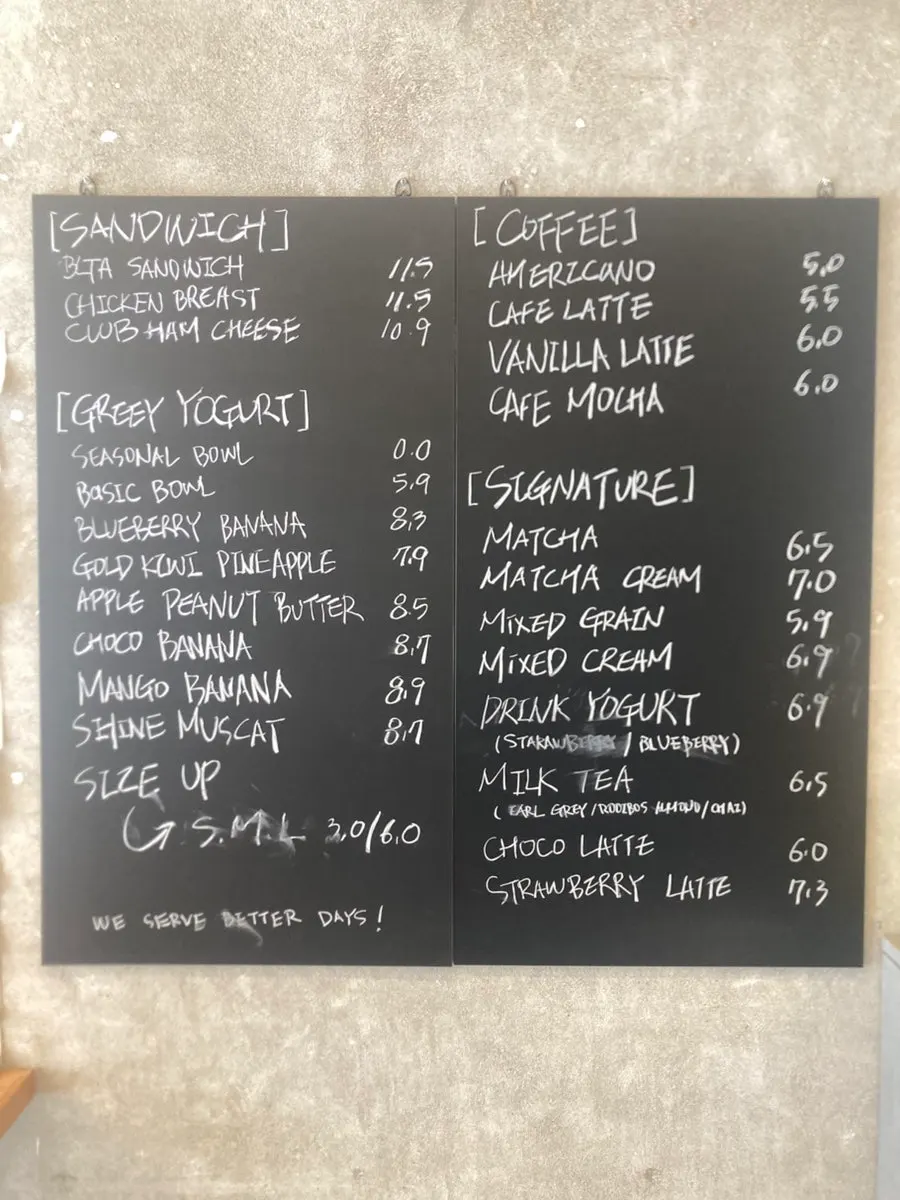 [SANDWICH]
BLTA SANDWICH 11.5
CHICKEN BREAST 11.5
CLUB HAM CHEESE 10.9
[GREEY YOGURT]
SEASONAL BOWL 0.0
BASIC BOWL 5.9
BLUEBERRY BANANA 8.3
GOLD KIWI PINEAPPLE 7.9
APPLE PEANUT BUTTER 8.5
CHOCO BANANA 8.7
MANGO BANANA 8.9
SHINE MUSCAT 8.7
SIZE UP
S.M.L 3.0/6.0
WE SERVE BETTER DAYS!
[COFFEE]
AMERICANO 5.0
CAFE LATTE 5.5
VANILLA LATTE 6.0
CAFE MOCHA 6.0
[SIGNATURE]
MATCHA 6.5
MATCHA CREAM 7.0
MIXED GRAIN 5.9
MIXED CREAM 6.9
DRINK YOGURT 6.9
(STRAWBERRY / BLUEBERRY)
MILK TEA 6.5
(EARL GREY/ROOIBOS ALMOND/CHAI)
CHOCO LATTE 6.0
STRAWBERRY LATTE 7.3